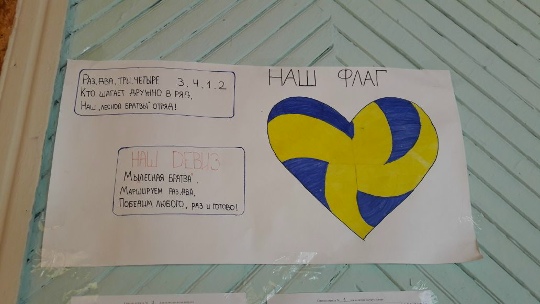 РАЗ, ДВА, ТРИ, ЧЕТЫРЕ 3, 4, 1, 2
КТО ШАГАЕТ ДРУЖНО В РЯД,
НАШ „ЛЕСНОЙ БРАТВЫ" ОТРЯД!
НАШ ДЕВИЗ
МЫ ЛЕСНАЯ БРАТВА",
МАРШИРУЕМ РАЗ, ДВА,
ПОБЕДИМ ЛЮБОГО, РАЗ И ГОТОВО!
НАШ ФЛАГ